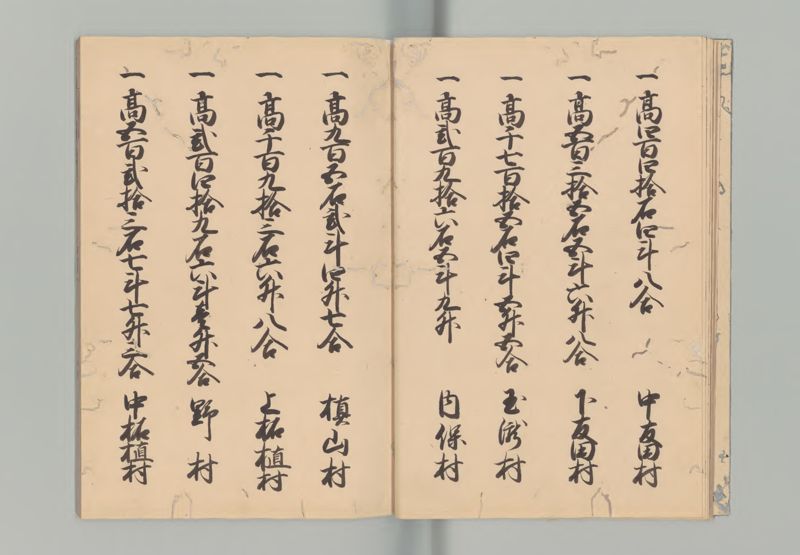 一高四百四拾石四斗八合 中友田村
一高五百三拾五石五斗六升八合 下友田村
一高千七百拾五石四斗五升五合 玉瀧村
一高弐百九拾六石五斗九升 内保村
一高九百五石弐斗四升七合 槙山村
一高千百九拾三石六升八合 上柘植村
一高弐百四拾九石六斗壱升五合 野村
一高五百弐拾三石七斗七升三合 中柘植村